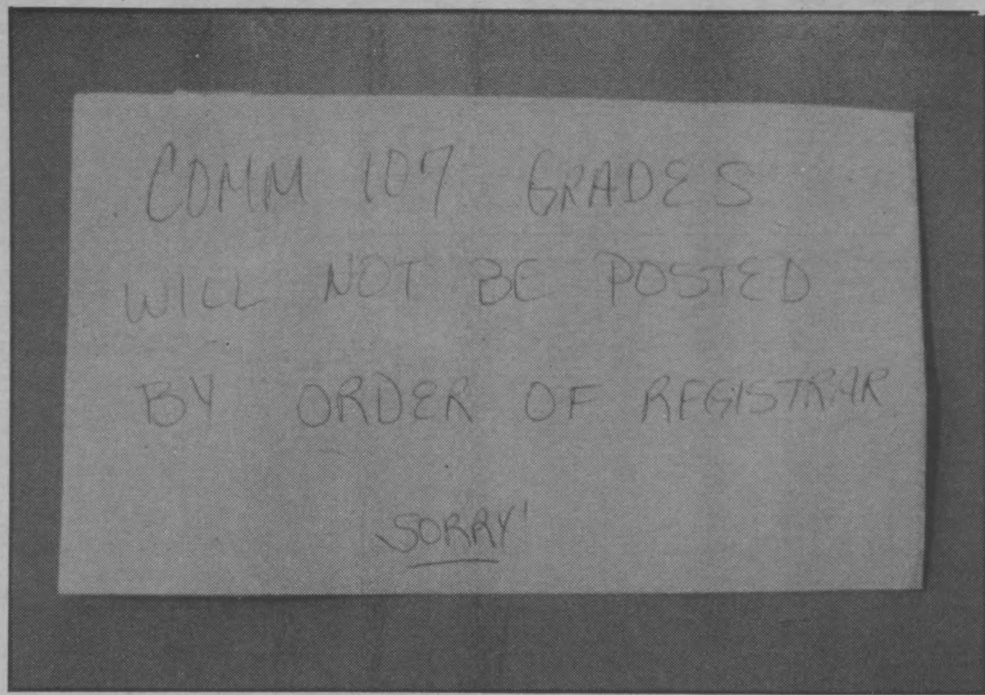 COMM 107 GRADES
WILL NOT BE POSTED
BY ORDER OF REGISTRAR
SORRY!